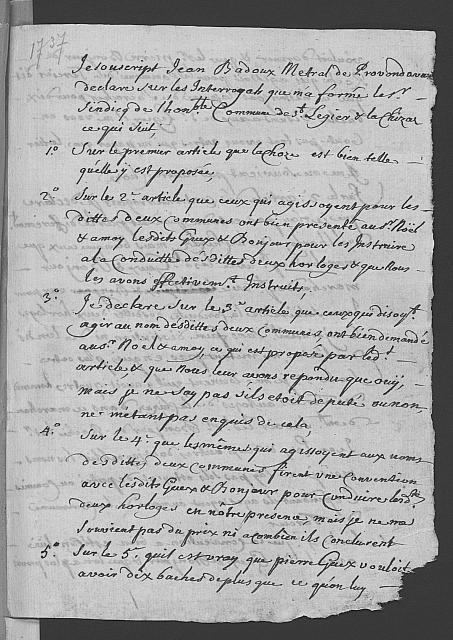 1737
Je souscript Jean Badoux Metral de Provond avoir
declare sur les Interrogats que ma formé le Sr
Sindicq de lhon.ble Commune de St Legier & la Chiza
ce qui suit
1.o Sur le premier article que la Choze est bien telle
quelle ÿ est proposée,
2.o Sur le 2.e article que ceux qui agissoyent pour les
dittes deux communes ont bien presenté au Sr Noël
& amoy lesdits Gueux & Bonjour pour les Instruire
a la Conduitte desdittes deux horloges & que Nous
les avons effectivem.t Instruits,
3.o Je declare Sur le 3.e article que ceux qui disoy.t
agir au nom desdittes deux communes, ont bien demandé
au Sr Noel & amoy, ce qui est proposé par led.t
article & que Nous leur avons repondu que ouÿ,
mais je ne say pas s'ils etoit deputé ou non
ne metant pas enquis de cela
4.o Sur le 4.e que les mêmes qui agissoyent aux noms
desdittes deux communes firent une Convention
avec lesdits Gueux & Bonjour pour Conduire lesd.tes
deux horloges en nôtre presence, mais je ne ma
souvient pas du prix ni a combien ils conclurent
5.o Sur le 5.e quil est vray que pierre Gueux vouloit
avoir dix baches de plus que ce qu'on luy